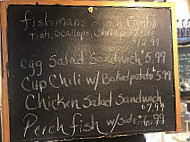 fishmans Lunch Combo
Fish, Scallops, Shrimp
12.99
egg Salad Sandwich 5.99
Cup Chili w/ Baked potato 5.99
Chicken Salad Sandwich
7.99
Perch fish w/side 6.99